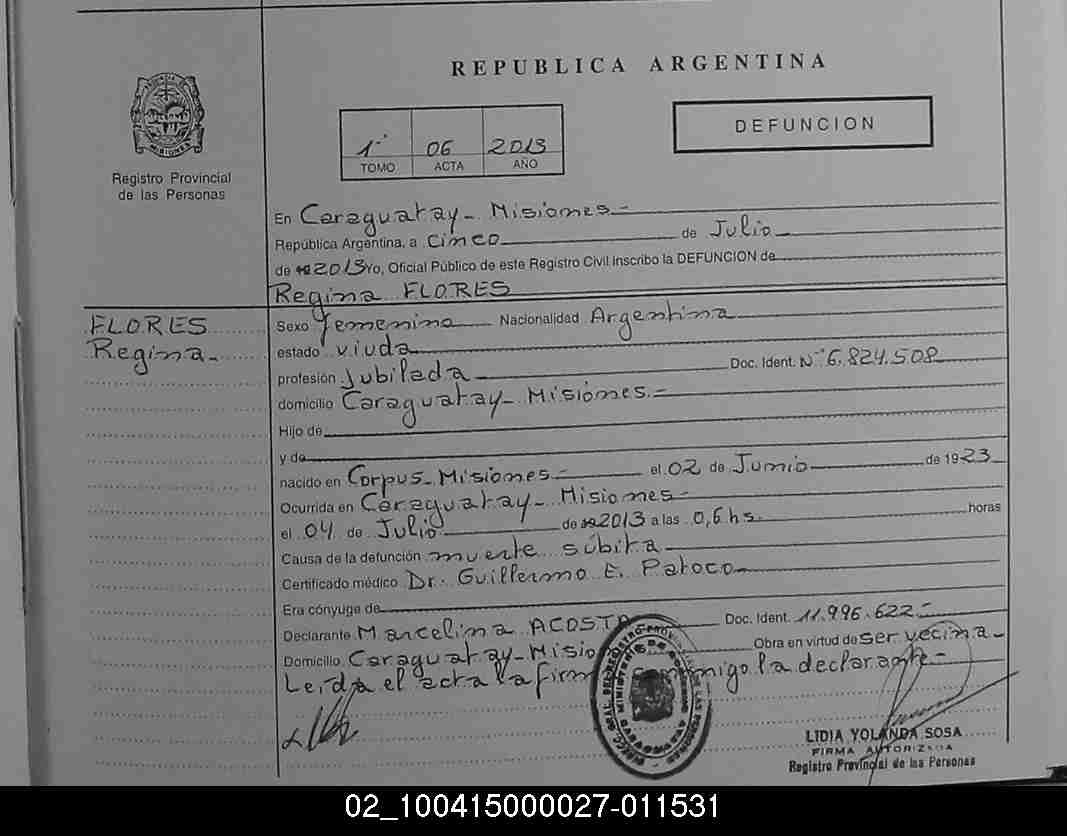 REPUBLICA ARGENTINA
PROVINCIA DE MISIONES
Registro Provincial
de las Personas
1º 06 2013
TOMO ACTA AÑO
DEFUNCION
En Caraguatay - Misiones -
República Argentina, a cinco de Julio
de 19 2013 Yo, Oficial Público de este Registro Civil inscribo la DEFUNCION de
Regina FLORES
FLORES
Regina -
Sexo femenino Nacionalidad Argentina
estado viuda
profesión Jubilada Doc. Ident. Nº 6.824.508
domicilio Caraguatay - Misiones -
Hijo de
y de
nacido en Corpus - Misiones - el 02 de Junio de 1923
Ocurrida en Caraguatay - Misiones -
el 04 de Julio de 19 2013 a las 0,6 hs. horas
Causa de la defunción muerte súbita
Certificado médico Dr. Guillermo E. Patoco
Era cónyuge de
Declarante Marcelina ACOSTA Doc. Ident. 11.996.622 -
Domicilio Caraguatay - Misio Obra en virtud de ser vecina -
Leída el acta la firm migo la declarante -
LIDIA YOLANDA SOSA
FIRMA AUTORIZADA
Registro Provincial de las Personas
02_100415000027-011531